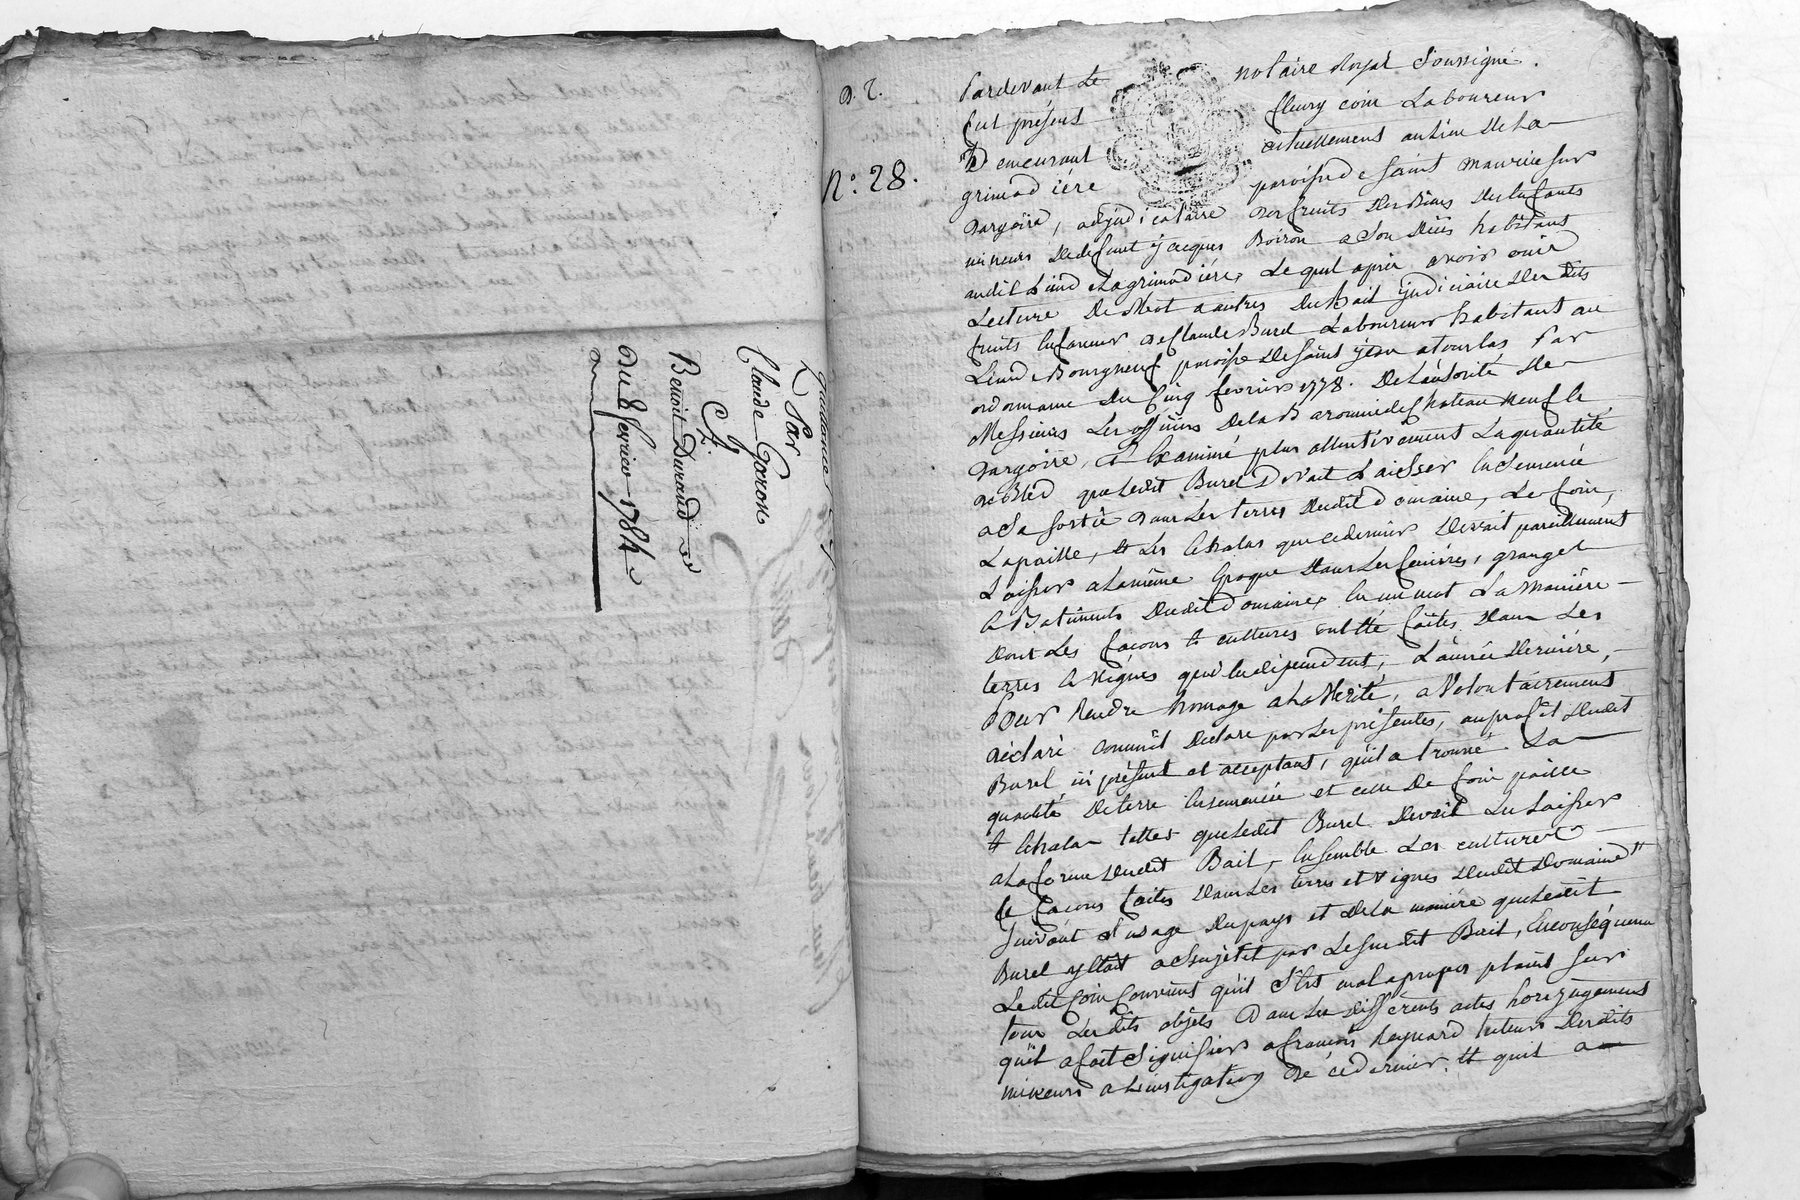 quittance
Par
Claude Goron
à
Benoit Durand
du 8 fevrier 1784
D. 2.
N°. 28.
Pardevant Le notaire Royal Soussigné.
fut présent fleury coin Laboureur
Demeurant actuellement au lieu De La
grimodiére paroisse de saint maurice sur
Dargoire, adjudicataire des fruits Des Biens Des Enfants
mineurs De deffunt jacques Boiron a Son Déces habitant
audit Lieu De La grimodiére, Lequel aprés avoir ouïr
Lecture De Mot a autres Du Bail judiciaire Des dits
fruits En faveur De Claude Burel Laboureur habitant au
Lieu de Bourgneuf paroisse De saint jean a tourlas Par
ordonnance Du Cinq fevrier 1778. De L'autorité De
Messieurs Les officiers De La Baronnie de Chateauneuf Le
Dargoire, Et Examiné plus attentivement La quantité
De Bled que Ledit Burel Devait Laisser En Semence
a Sa Sortie dans Les terres Dudit Domaine, Le foin,
La paille, et Les Echalas que ce dernier Devait pareillement
Laisser a La même Epoque Dans Les feniéres, granges
& Batiments Dudit Domaine, En un mot La Maniére
Dont Les façons et cultures ont été faites Dans Les
terres & vignes qui En dependent, L'année Derniére,
Pour Rendre homage a La Verité, a Volontairement
déclaré comme il Declare par Les présentes, au profit Dudit
Burel ici présent et acceptant, qu'il a trouvé La
quantité De terre Ensemencée et celle De foin paille
et Echalas telles que Ledit Burel Devait Les Laisser
a La forme Dudit Bail, Ensemble Les cultures
Et façons faites Dans Les terres et vignes Dudit Domaine
Suivant L'usage Du pays et De La maniére que Ledit
Burel y Etait assujetit par Le Susdit Bail, En conséquence
Ledit Coin Convient qu'il S'est mal a propos plaint Sur
tous Les dits objets Dans Les differents actes
qu'il a fait Signifier a françois Reynard tuteur Des dits
mineurs a L'instigation de ce dernier, et qu'il a